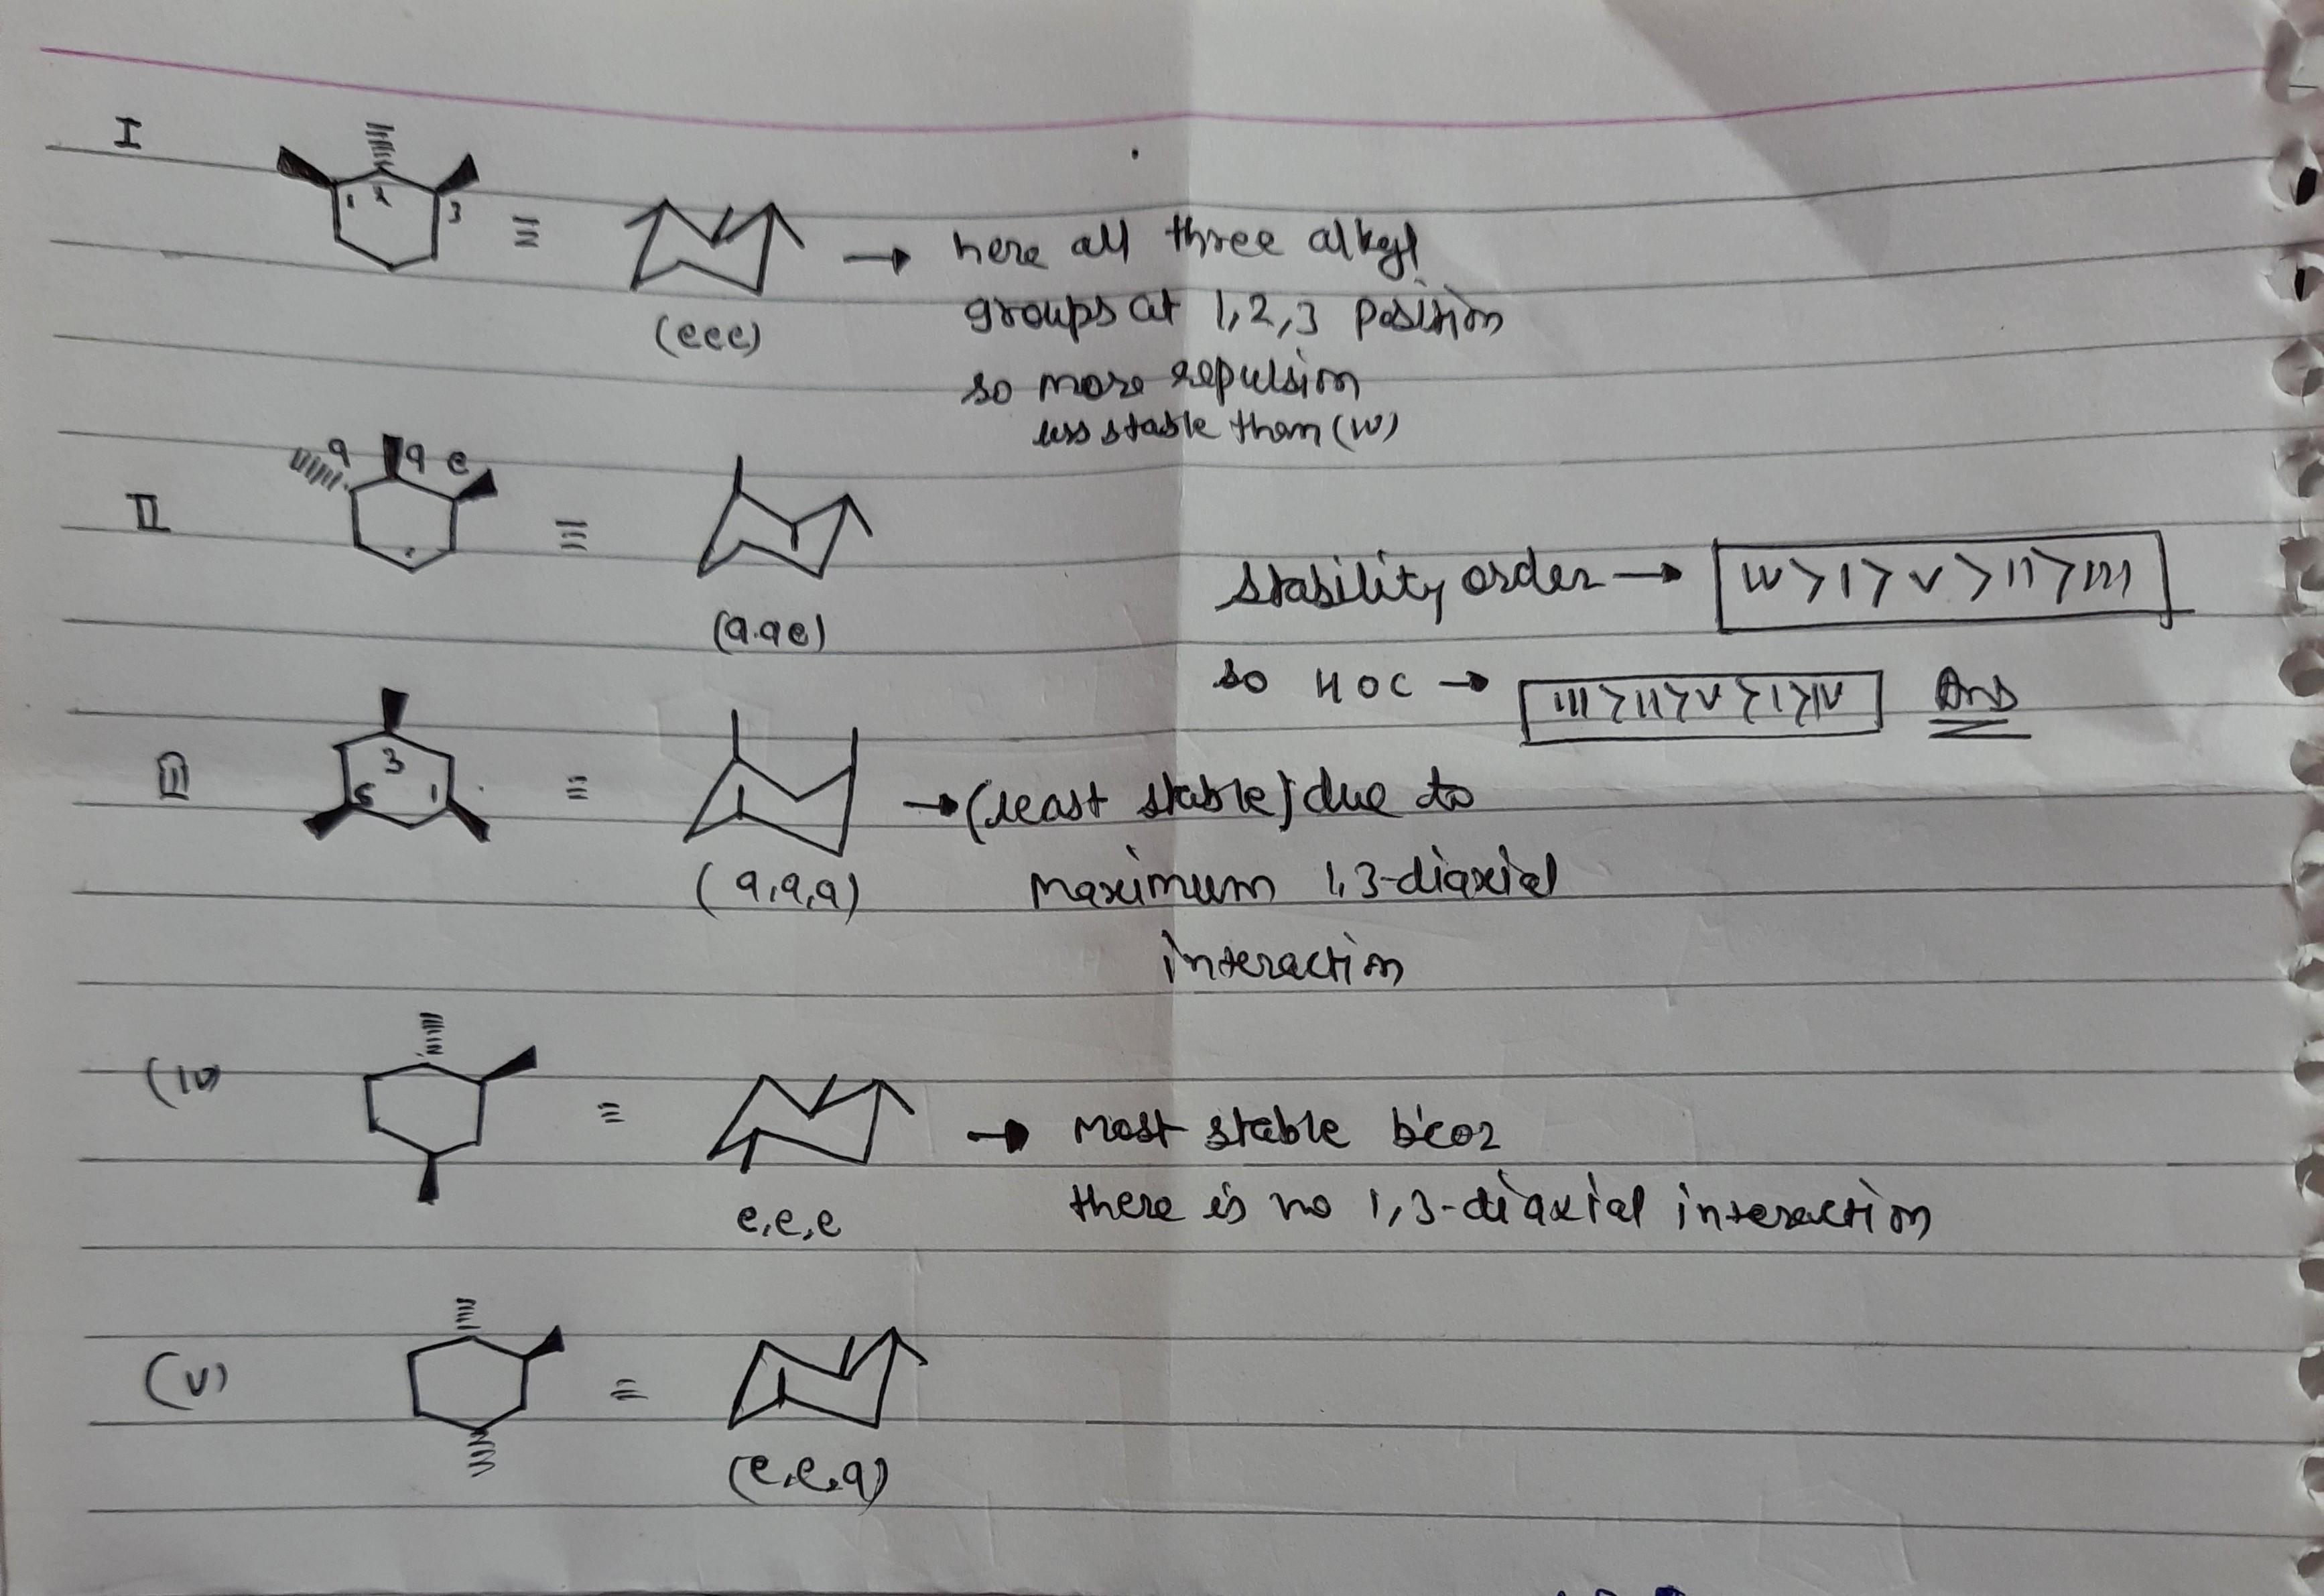 I
1 2 3
≡
(eee)
→ here all three alkyl
groups at 1,2,3 position
so more repulsion
less stable than (IV)
II
a a e
≡
(a.ae)
stability order → IV > I > V > II > III
so HOC → III > II > V > I > IV Ans
III
3
5 1
≡
(a,a,a)
→ (least stable) due to
maximum 1,3-diaxial
interaction
(IV)
≡
e,e,e
→ most stable b'coz
there is no 1,3-diaxial interaction
(V)
≡
(e,e,a)